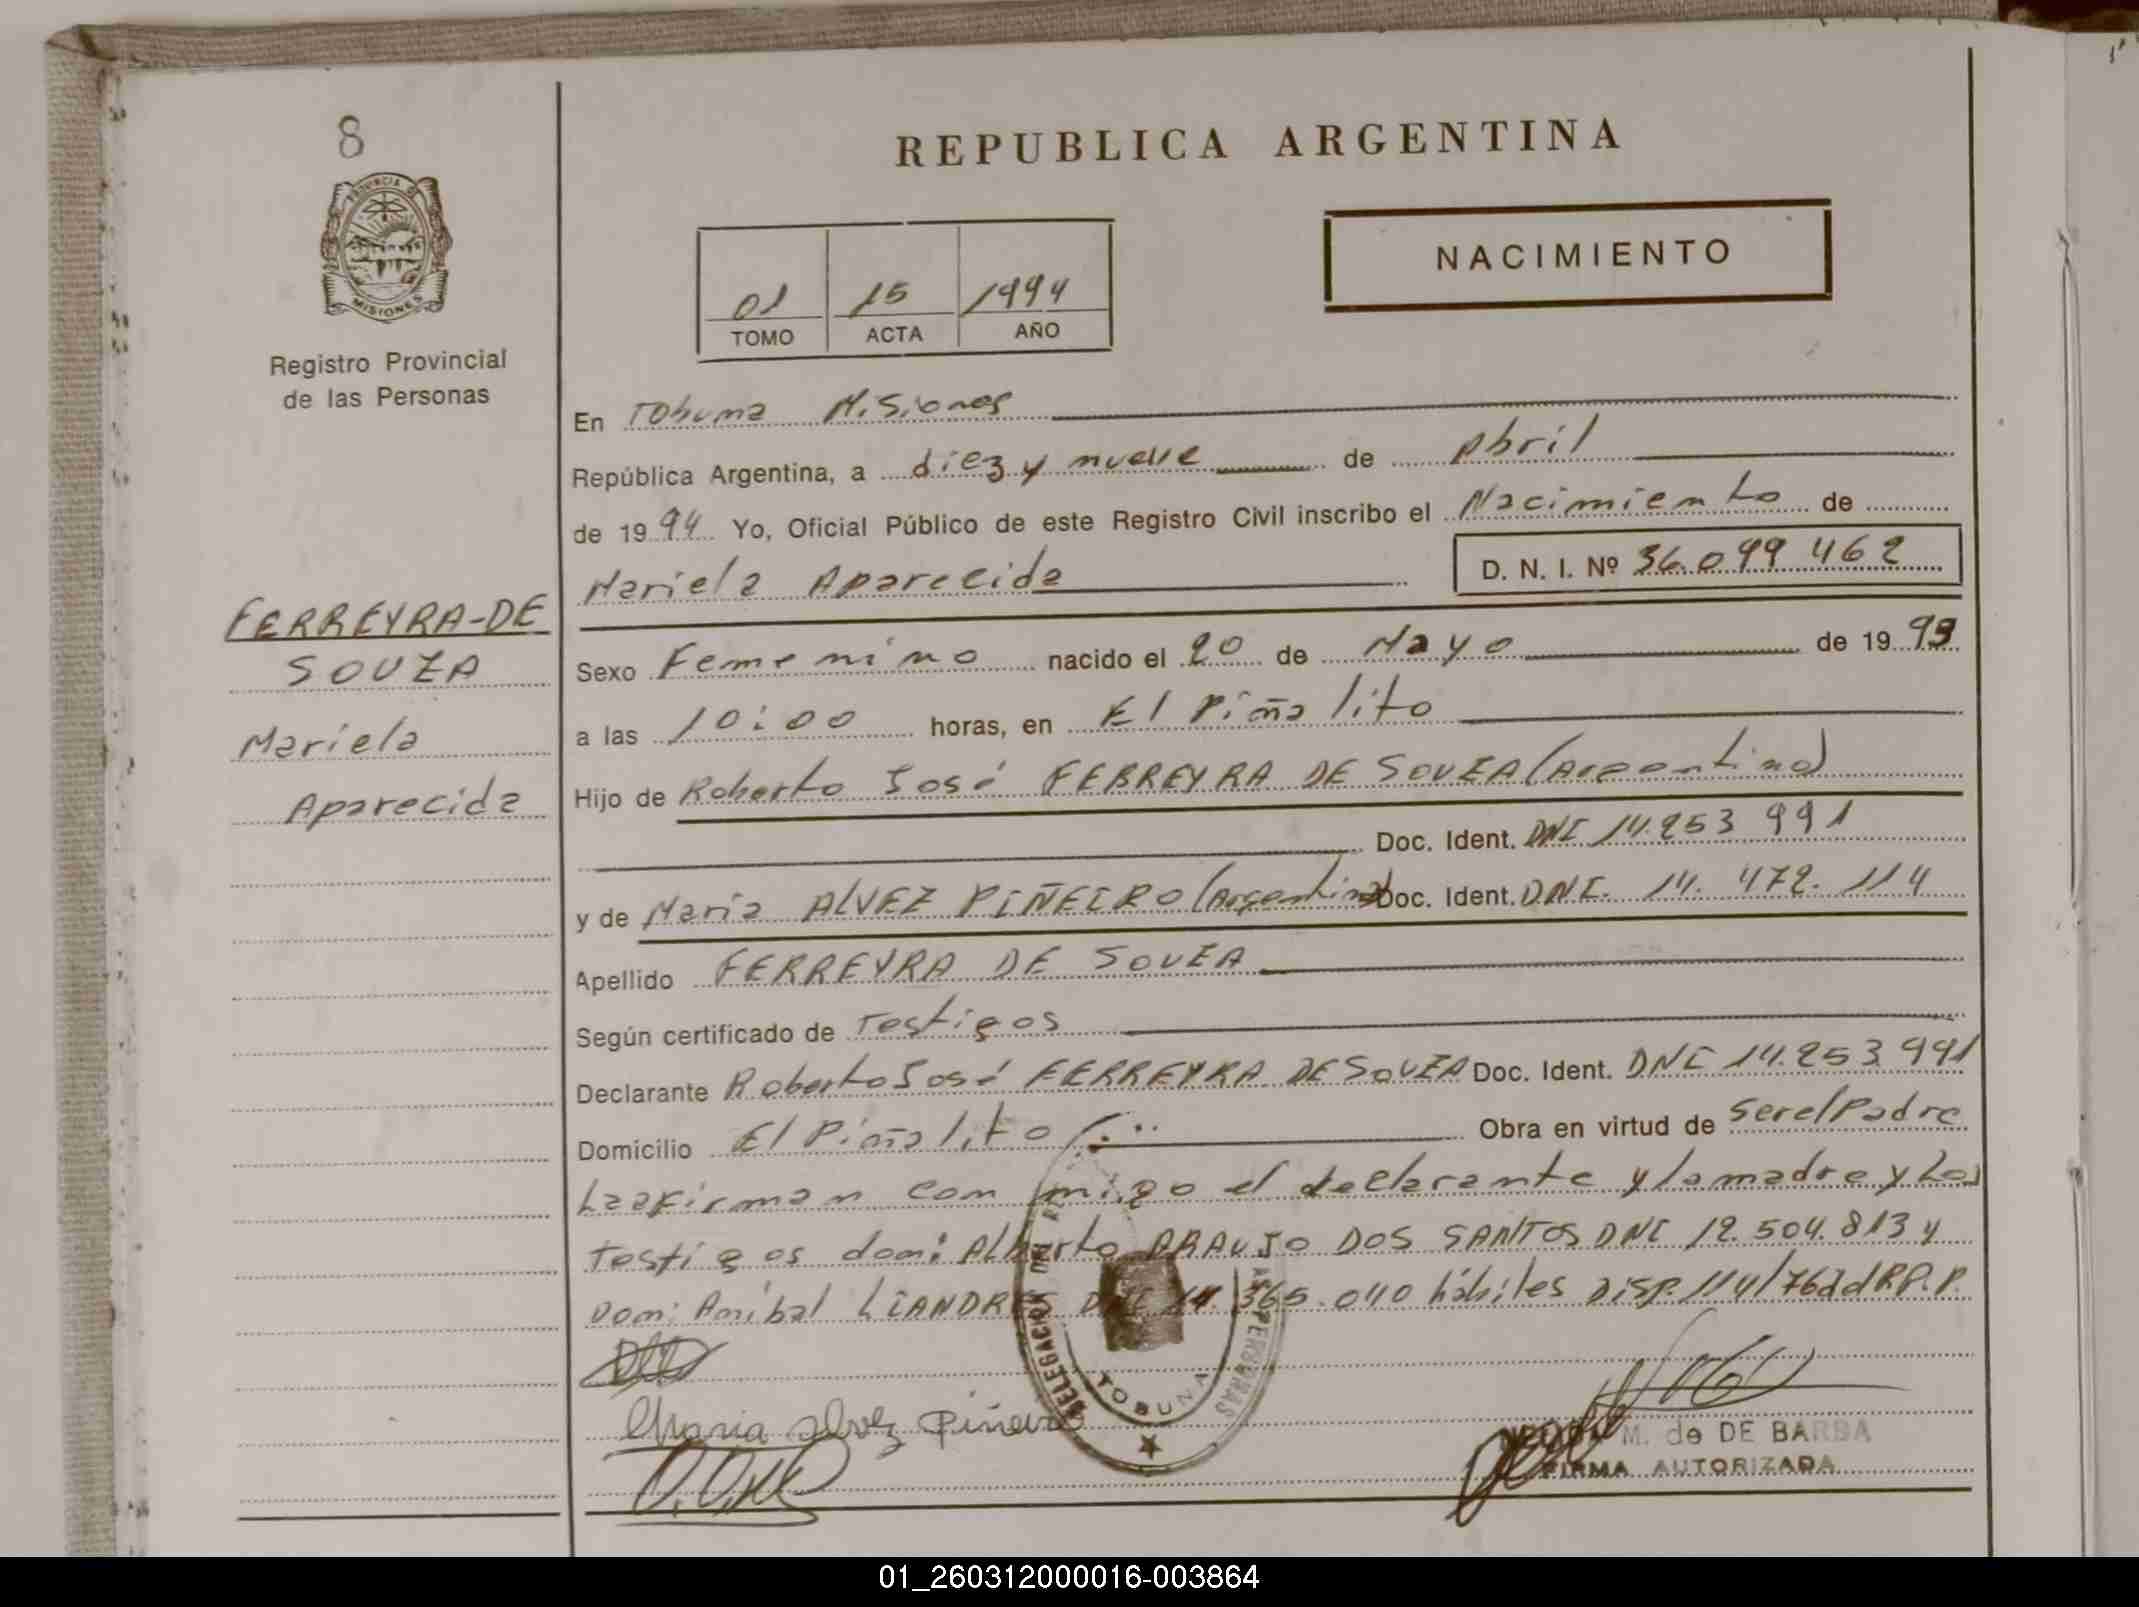 8
REPUBLICA ARGENTINA
PROVINCIA DE
MISIONES
NACIMIENTO
01 15 1994
TOMO ACTA AÑO
Registro Provincial
de las Personas
En Tobuna Misiones
República Argentina, a diez y nueve de Abril
de 1994 Yo, Oficial Público de este Registro Civil inscribo el Nacimiento de
Mariela Aparecida D. N. I. Nº 36.099.462
FERREYRA-DE
SOUZA
Mariela
Aparecida
Sexo Femenino nacido el 20 de Mayo de 1993
a las 10:00 horas, en El Piñalito
Hijo de Roberto José FERREYRA DE SOUZA (Argentino)
Doc. Ident. DNI 14.253 991
y de María ALVEZ PIÑEIRO (Argentina) Doc. Ident. DNI. 14. 472. 114
Apellido FERREYRA DE SOUZA
Según certificado de Testigos
Declarante Roberto José FERREYRA DE SOUZA Doc. Ident. DNI 14.253 991
Domicilio El Piñalito Obra en virtud de Ser el Padre
Lea firman con migo el declarante y la madre y Los
Testigos dom: Alberto ARAUJO DOS SANTOS DNI 12.504.813 y
Dom: Anibal LIANDRES DNI 14.365.040 hábiles Disp. 114/76 d d R.P.P.
DELEGACION DEL
PERSONAS
TOBUNA
Maria Alvez Piñeiro
M. de DE BARBA
FIRMA AUTORIZADA
01_260312000016-003864